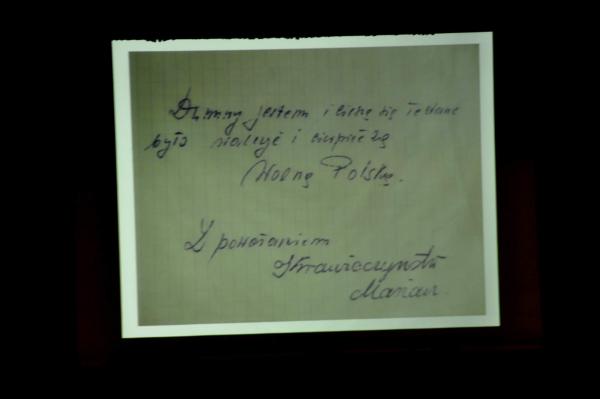 Dumny jestem i cieszę się że dane
było walczyć i cierpieć za
Wolną Polskę.
Z poważaniem
Krawieczyński
Marian